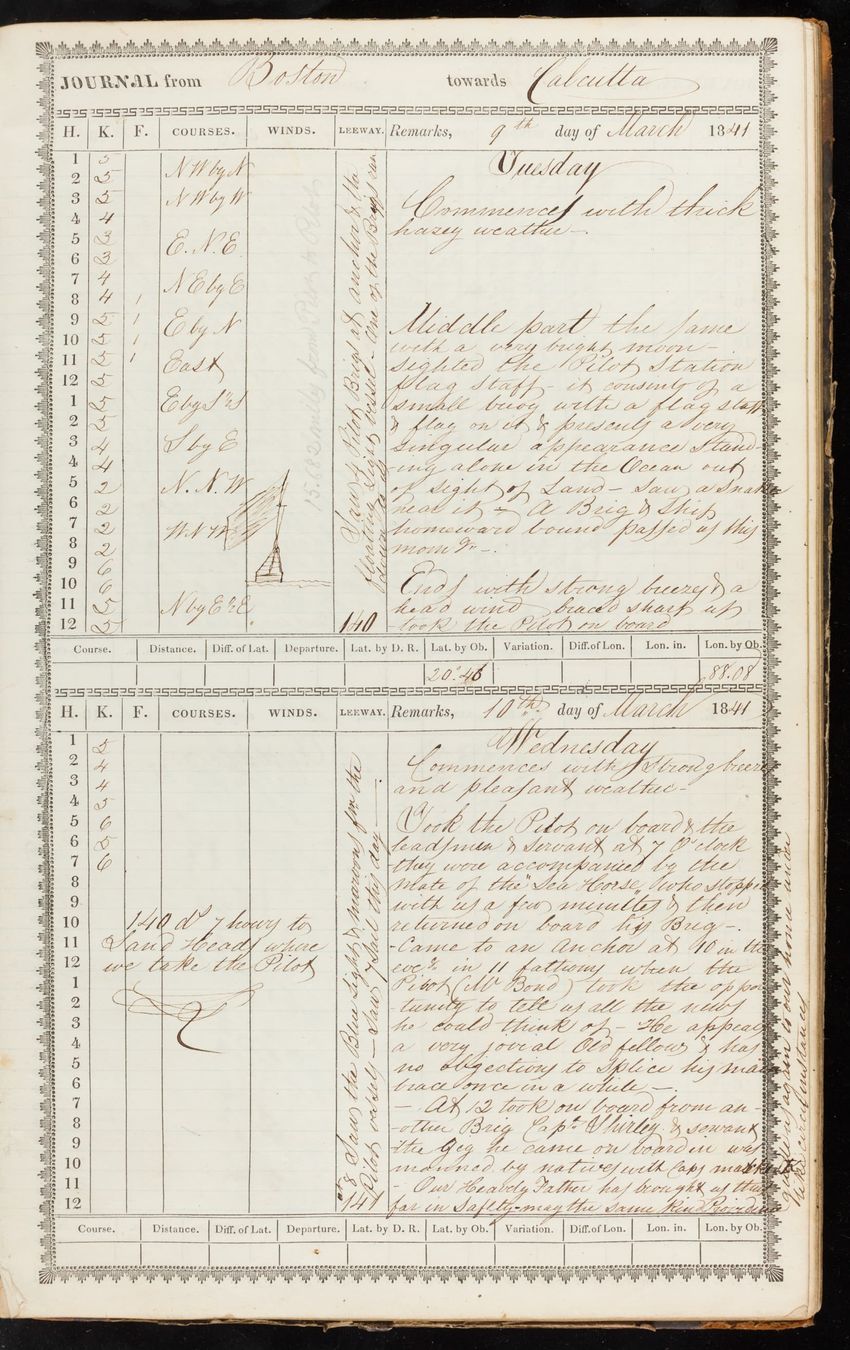 JOURNAL from Boston towards Calcutta
H. K. F. COURSES. WINDS. LEEWAY. Remarks, 9th day of March 1841
Tuesday
1 5
2 5 N W by N
3 5 N W by W
4 4
5 3 E. N. E
6 3
7 4 N E by E
8 4 1
9 5 1 E by N
10 5 1
11 5 1 East
12 5
1 5 E by S ½ S
2 5
3 4 S by E
4 4
5 2 N. N. W
6 2
7 2 W. N. W
8 2
9 6
10 6
11 5 N by E ½ E
12 5 140
15.682 miles from Port to Pilot
Saw 4 Pilot Brigs at anchor & the
floating Light vessel - one of the Brigs ran
down to us
Commences with thick
hazey weather -
Middle part the same
with a very bright moon -
sighted the Pilot Station
flag staff - it consists of a
small buoy with a flag staff
& flag on it & presents a very
singular appearance stand-
-ing alone in the Ocean out
of sight of Land - saw a snake
near it - A Brig & Ship
homeward bound passed us this
morng -.
Ends with strong breezes & a
head wind braced sharp up
- took the Pilot on board
Course. Distance. Diff. of Lat. Departure. Lat. by D. R. Lat. by Ob. Variation. Diff. of Lon. Lon. in. Lon. by Ob.
20°.46 88.08
H. K. F. COURSES. WINDS. LEEWAY. Remarks, 10th day of March 1841
Wednesday
1 5
2 4
3 4
4 5
5 6
6 5
7 6
8
9
10
11
12
1
2
3
4
5
6
7
8
9
10
11
12 141
140 ds 7 hours to
Sand Heads where
we take the Pilot
at 8 Saw the Blue Lights & maroons from the
Pilot vessels - Saw 7 Sail this day -.
Commences with Strong breezes
and pleasant weather -
Took the Pilot on board & the
leadsman & servant at 7 O'clock
- they were accompanied by the
mate of the "Sea Horse" who stopped
with us a few minutes & then
returned on board his Brig -.
- Came to an anchor at 10 in the
eveng in 11 fathoms when the
Pilot (Mr Bond) took the oppor
-tunity to tell us all the news
he could think of - He appears
a very jovial Old fellow & has
no objections to splice his main
brace once in a while -.
- At 12 took on board from an-
-other Brig Capt. Shirley & servant
the Gig he came on board in was
manned by natives with Caps marked
- Our Heavenly Father has brought us thus
far in safety - may the same kind Providence
guide us again to our home under
like circumstances
Course. Distance. Diff. of Lat. Departure. Lat. by D. R. Lat. by Ob. Variation. Diff. of Lon. Lon. in. Lon. by Ob.